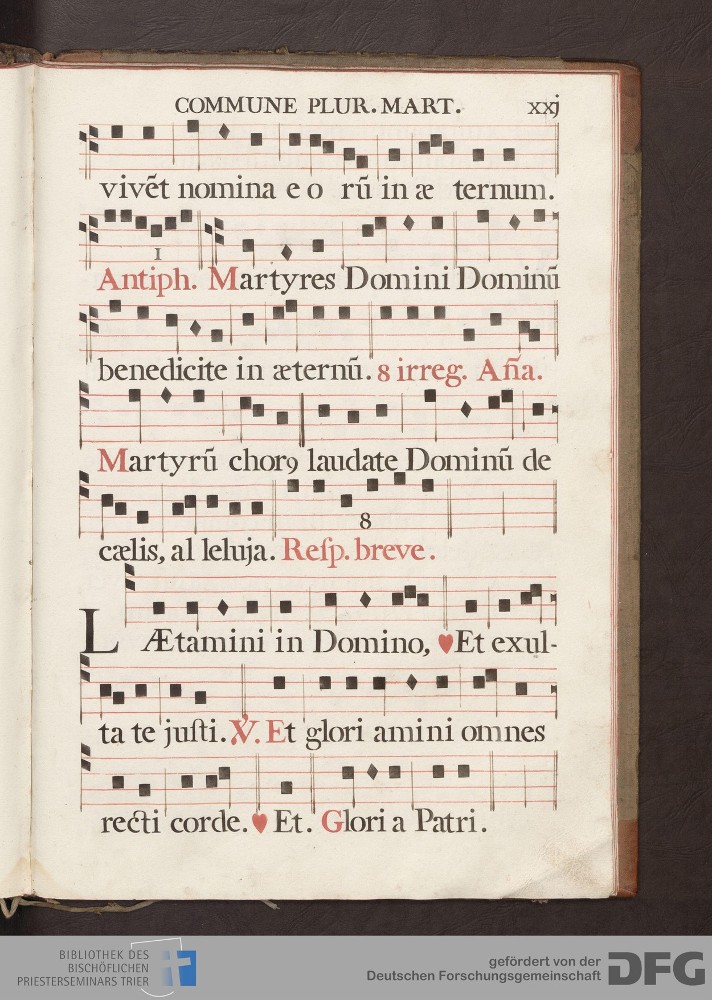 COMMUNE PLUR. MART. xxj
vivēt nomina e o rū in æ ternum.
1
Antiph. Martyres Domini Dominū
benedicite in æternū. 8 irreg. Aña.
Martyrū chorꝯ laudate Dominū de
8
cælis, al leluja. Reſp. breve.
LÆtamini in Domino, ♥Et exul-
ta te juſti. ℣. Et glori amini omnes
recti corde. ♥ Et. Glori a Patri.
BIBLIOTHEK DES
BISCHÖFLICHEN
PRIESTERSEMINARS TRIER
gefördert von der
Deutschen Forschungsgemeinschaft DFG